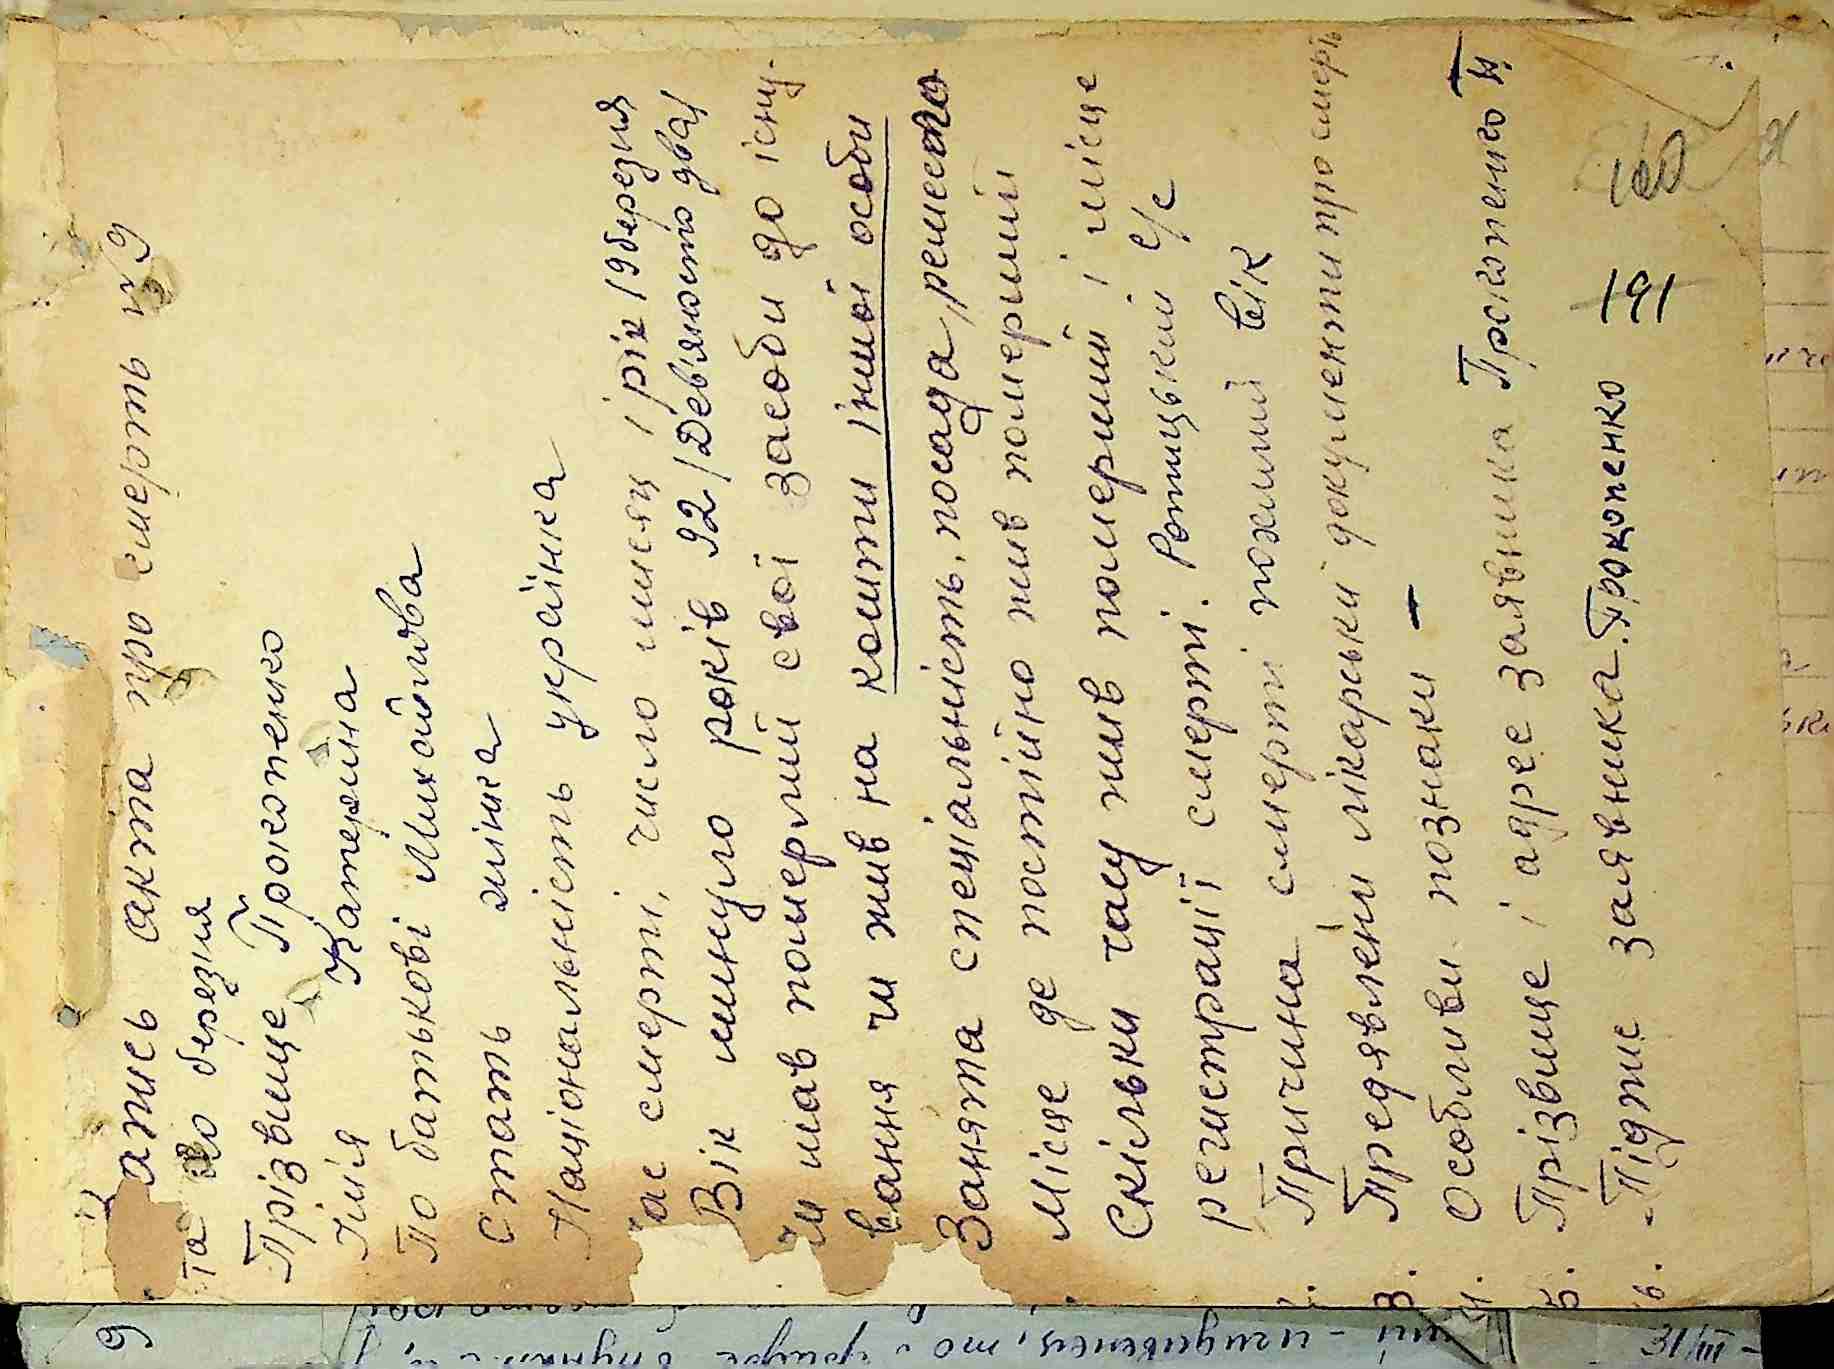 апись акта про смерть №9
та 20 березня
Прізвище Прокопенко
Імія Катерина
По батькові Михайлова
Стать жінка
Національність українка
час смерті, число місяц і рік 19 березня
Вік минуло років 92 /Дев'яносто два/
Чи мав померлий свої засоби до існу-
вання чи жив на кошти іншої особи
Занята спеціальність, посада, ремесло
Місце де постійно жив померший
Скільки часу жив померший і місце
регистрації смерті. Ротицький с/с
Причина смерті похилий вік
3. Предявлени лікарські документи про смерть
4. Особливи познаки –
5. Прізвище і адрес заявника Прокопенко Н.
6. Підпис заявника. Прокопенко
191 160